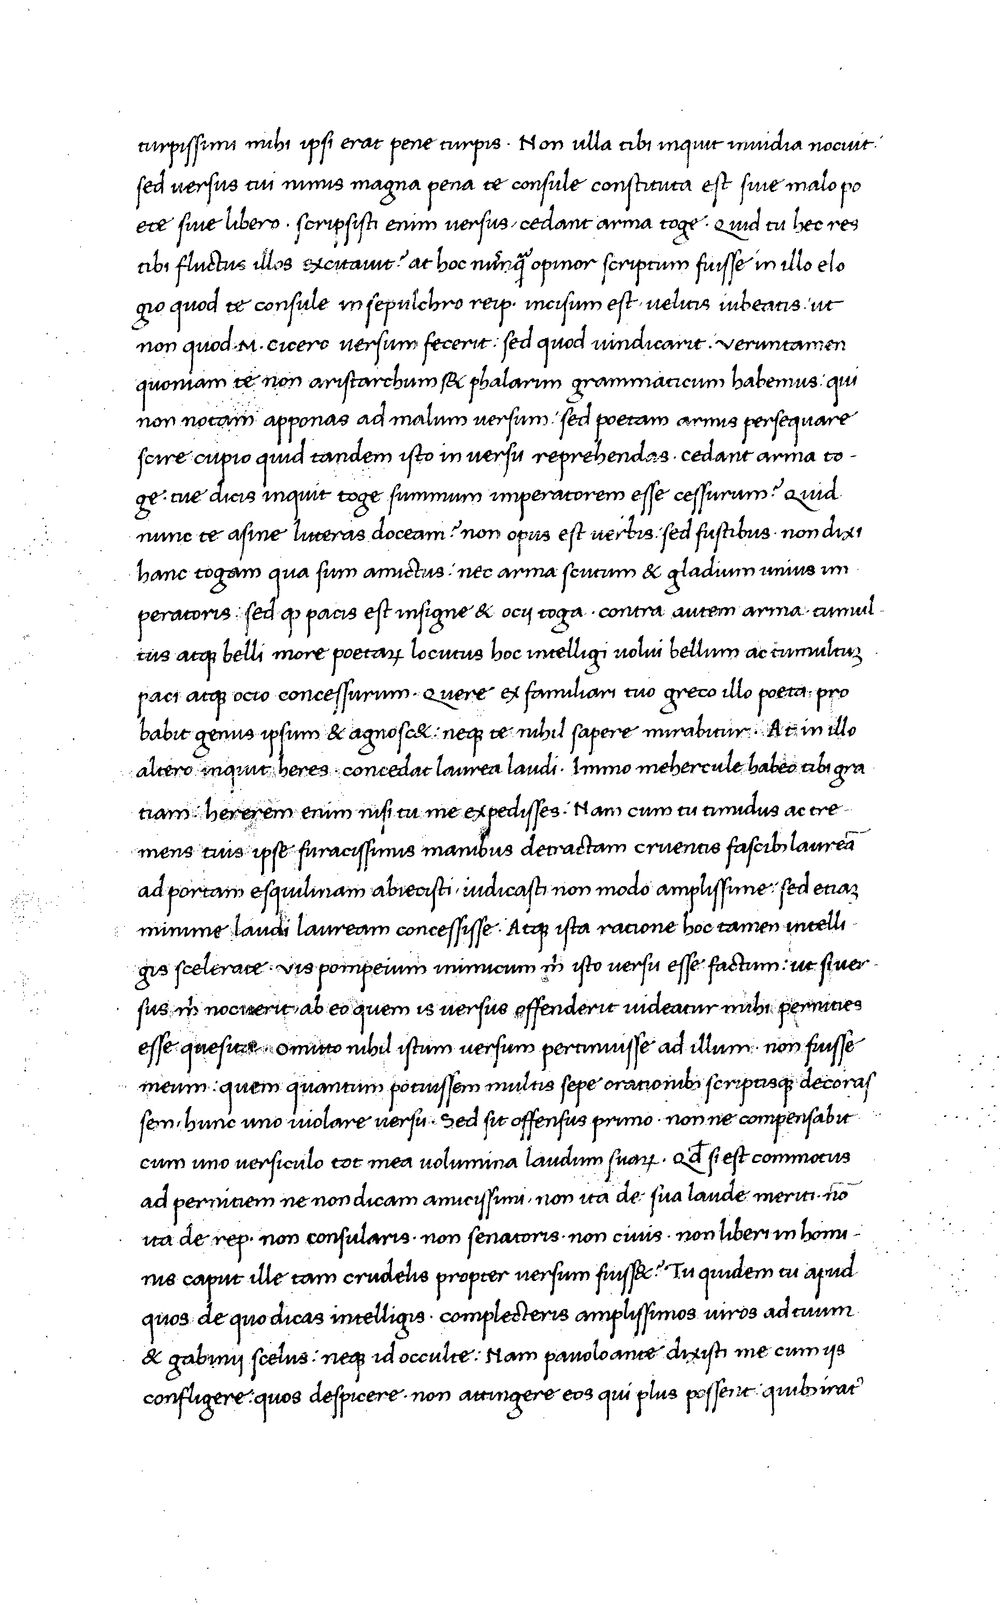 turpissimi mihi ipsi erat pene turpis. Non ulla tibi inquit inuidia nocuit:
sed uersus tui nimis magna pena te consule constituta est siue malo po
ete siue libero. scripsisti enim uersus, cedant arma toge. Quid tu hec res
tibi fluctus illos excitauit? at hoc nũnq̃ opinor scriptum fuisse in illo elo
gio quod te consule in sepulchro reip. incisum est. uelitis iubeatis: ut
non quod .M. cicero uersum fecerit: sed quod uindicarit. Veruntamen
quoniam te non aristarchum sed phalarim grammaticum habemus: qui
non notam apponas ad malum uersum: sed poetam armis persequare
scire cupio quid tandem isto in uersu reprehendas. cedant arma to-
ge: tue dicis inquit toge summum imperatorem esse cessurum? Quid
nunc te asine litteras doceam? non opus est uerbis: sed fustibus. non dixi
hanc togam qua sum amictus: nec arma scutum & gladium unius im
peratoris: sed ꝙ pacis est insigne & ocij toga. contra autem arma. tumul-
tus atqꝫ belli more poetaꝝ locutus hoc intelligi uolui bellum ac tumultuꝫ
paci atqꝫ ocio concessurum. Quere ex familiari tuo greco illo poeta: pro
babit genus ipsum & agnosc&: neqꝫ te nihil sapere mirabitur. At in illo
altero inquit heres. concedat laurea laudi. Immo mehercule habeo tibi gra
tiam: hererem enim nisi tu me expedisses. Nam cum tu timidus ac tre-
mens tuis ipse furacissimis manibus detractam cruentis fascibꝫ laureã
ad portam esquilinam abiecisti, iudicasti non modo amplissime: sed etiaꝫ
minime laudi lauream concessisse. Atqꝫ ista ratione hoc tamen intelli-
gis scelerate. vis pompeium inimicum m̃ isto uersu esse factum: ut si uer-
sus m̃ nocuerit, ab eo quem is uersus offenderit uideatur mihi pernities
esse quesita. Omitto nihil istum uersum pertinuisse ad illum. non fuisse
meum: quem quantum potuissem multis sepe orationibꝫ scriptisqꝫ decoras
sem, hunc uno uiolare uersu. Sed sit offensus primo. non ne compensabit
cum uno uersiculo tot mea uolumina laudum suaꝝ. Qđ si est commotus
ad pernitiem ne non dicam amicissimi. non ita de sua laude meriti. nõ
ita de rep. non consularis. non senatoris. non ciuis. non liberi in homi-
nis caput ille tam crudelis propter uersum fuiss&? Tu quidem tu apud
quos de quo dicas intelligis. complecteris amplissimos uiros ad tuum
& gabinij scelus: neqꝫ id occulte: Nam pauolo ante dixisti me cum ijs
confligere: quos despicere. non attingere eos qui plus possent: quibꝫ irat᾽